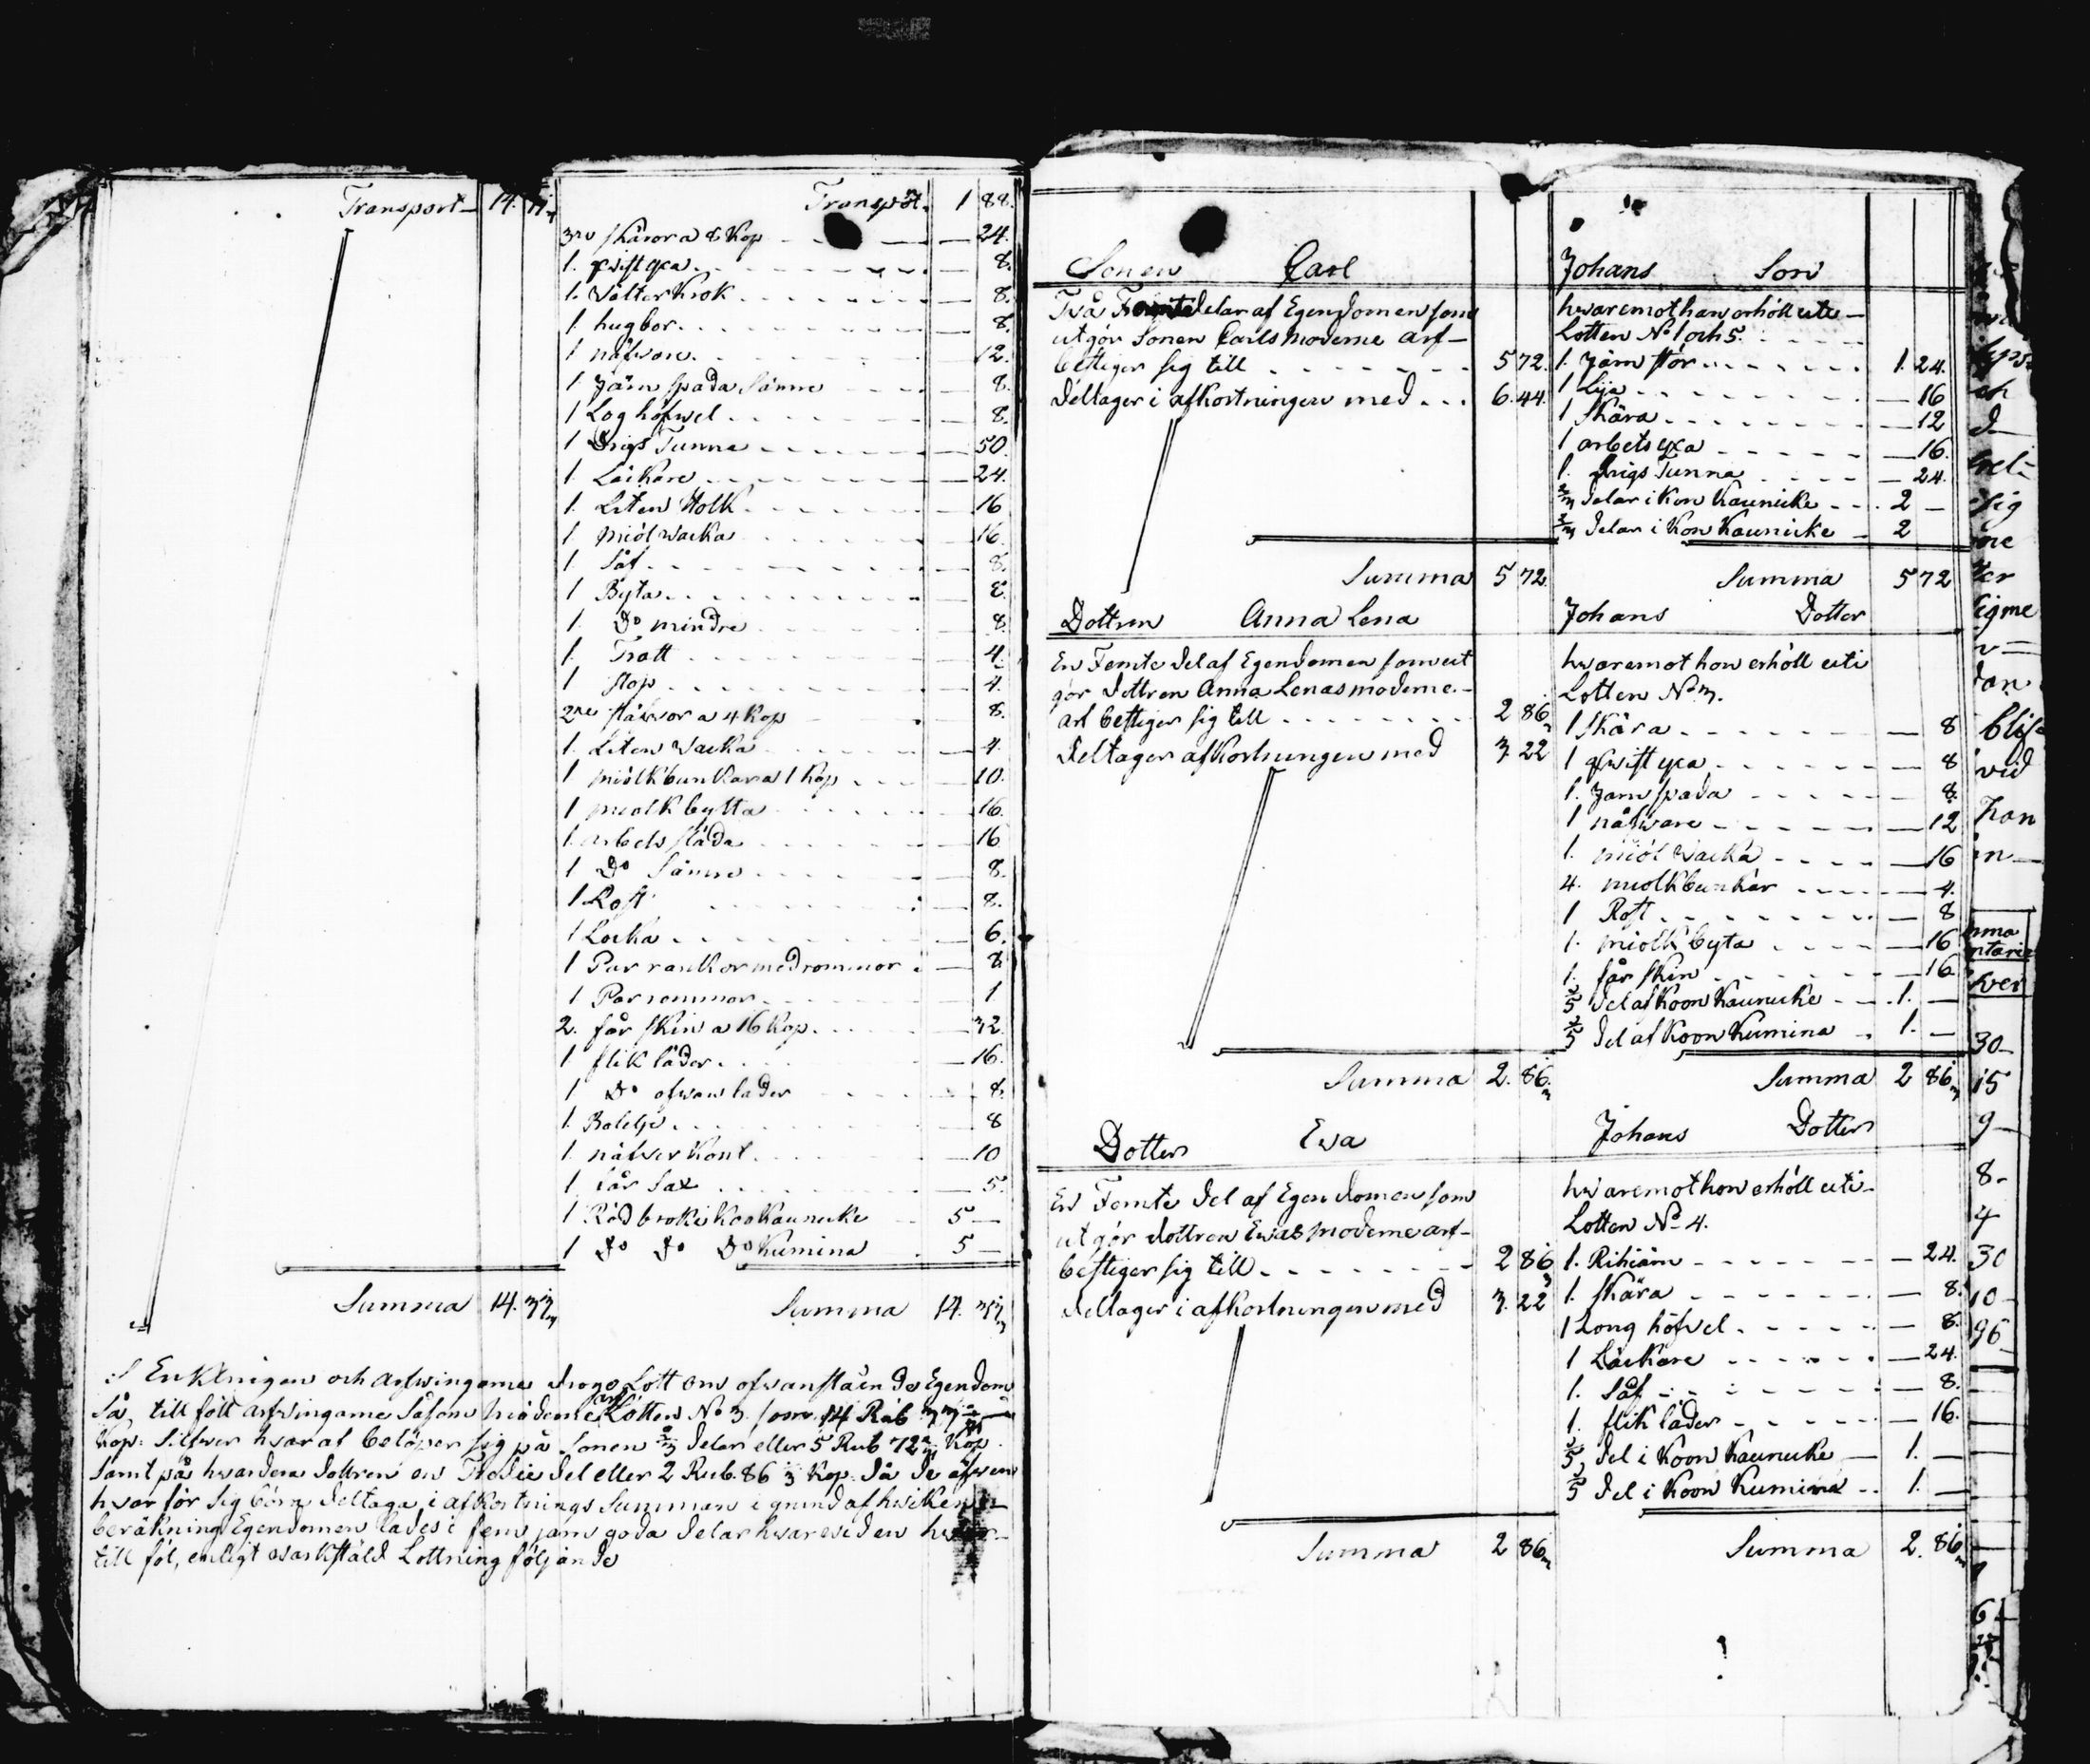 Transport 14.
Transpört. 1 88.
3ne skäror a 8 Kop — 24.
1. qwist yxa — 8.
1. Wälter Krok — 8.
1 hugbor — 8.
1 näfvare — 12.
1 Järn spada Sämre — 8.
1 Log höfvel — 8.
1 Drigs Tunna — 50.
1. Läikare — 24.
1. Liten Stolk — 16
1 miöl wacka — 16.
1 Såt — 8.
1 Byta — 8.
1. Do mindre — 8.
1. Tratt — 4.
1 Stop — 4.
2ne stäfvor a 4 Kop — 8.
1. Liten Wacka — 4.
1 miölkbunkar a 1 Kop — 10.
1 miolk bytta — 16.
1. arbets släda — 16
1 Do Sämre — 8.
1 Rost — 8.
1 Locka — 6.
1 Par rankor med rommor — 8
1 Par rommor — 1
2. får skin a 16 Kop. — 32.
1 flik läder — 16.
1 Do ofwan läder — 8.
1. Balelje — 8
1. näfver Kont — 10
1. får Sax — 5.
1 Röd broki Koo Kaunicke 5 —
1 Do Do Do Kumina 5 —
Summa 14.
Summa 14.
Enklingen och arfwingarne drogo Lott om ofwanstäende Egendom
Så, till fölt arfvingarne Såsom möderne arf Lotten No 3. som 14 Rub
Kop: Silfver hvaraf belöper sig på Sonen delar eller 5 Rub 72 Kop.
Samt på hvardera dottren en Tredie del eller 2 Rub. 86 Kop. Då de äfwen
hvar för sig böra deltaga i afkortnings Summan i grund af hvilken
beräkning Egendomen lades i fem jämgoda delar hvarwid en hwar
till föl, enligt warkstäld Lottning följande
Sonen Carl
Johans Son
Två delar af Egendomen som
utgör Sonen Carls möderne arf
bestiger sig till 5 72.
Deltager i afkortningen med 6.44.
hwaremot han erhöll uti
Lotten No 1 och 5.
1. Järn stör 1.24.
1 Lija — 16
1 Skära — 12
1 arbets yxa — 16.
1. Drigs Tunna — 24.
delar i Kon Kaunicke 2 —
delar i Kon Kaunicke 2
Summa 5 72.
Summa 5 72
Dottren Anna Lena
Johans Dotter
En Femte del af Egendomen som ut
gör dottren Anna Lenas moderne
arf bestiger sig till 2 86
deltager afkortningen med 3 22
hwaremot hon erhöll uti
Lotten No 3.
1 Skära — 8
1 qwist yxa — 8
1. Jarn spada — 8.
1 näfware — 12
1. miöl Wacka — 16
4. miolkbunkar — 4.
1 Rost — 8
1. miolk byta — 16
1. får skin — 16.
del af Koon Kaunicke 1. —
del af Koon Kumina 1. —
Summa 2. 86.
Summa 2 86
Dotter Ewa
Johans Dotter
En Femte del af Egendomen som
utgör dottren Ewas moderne arf
bestiger sig till 2 86
deltager i afkortningen med 3. 22
hwaremot hon erhöll uti
Lotten No 4.
1. Rihiärn — 24.
1. Skära — 8.
1 Long höfvel — 8.
1 Läckäre — 24.
1. Såf — 8.
1. flik läder — 16.
del i Koon Kaunicke 1. —
del i Koon Kumina 1. —
Summa 2 86
Summa 2. 86